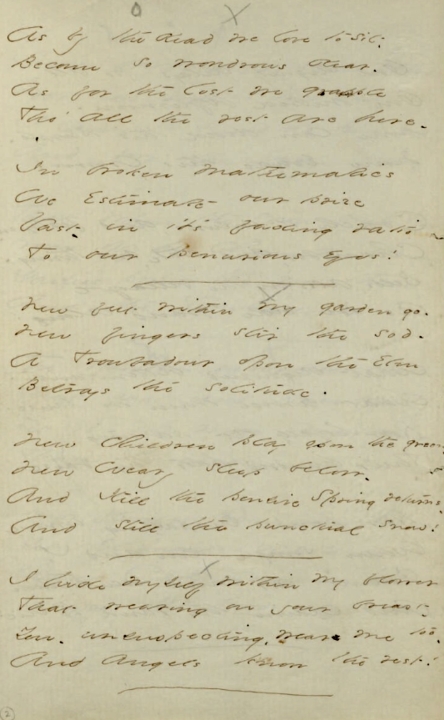 As by the dead we love to sit.
Become so wondrous dear.
As for the lost we grapple
Tho' all the rest are here.
In broken mathematics
We Estimate our prize
Vast in it's fading ratio
To our penurious Eyes!
New feet within my garden go.
New fingers stir the sod.
A Troubadour opon the Elm
Betrays the solitude.
New Children play opon the green
New Weary sleep below.
And still the pensive Spring returns.
And still the punctual snow!
I hide myself within my flower
That wearing on your breast
You. unsuspecting, wear me too.
And Angels know the rest!
2